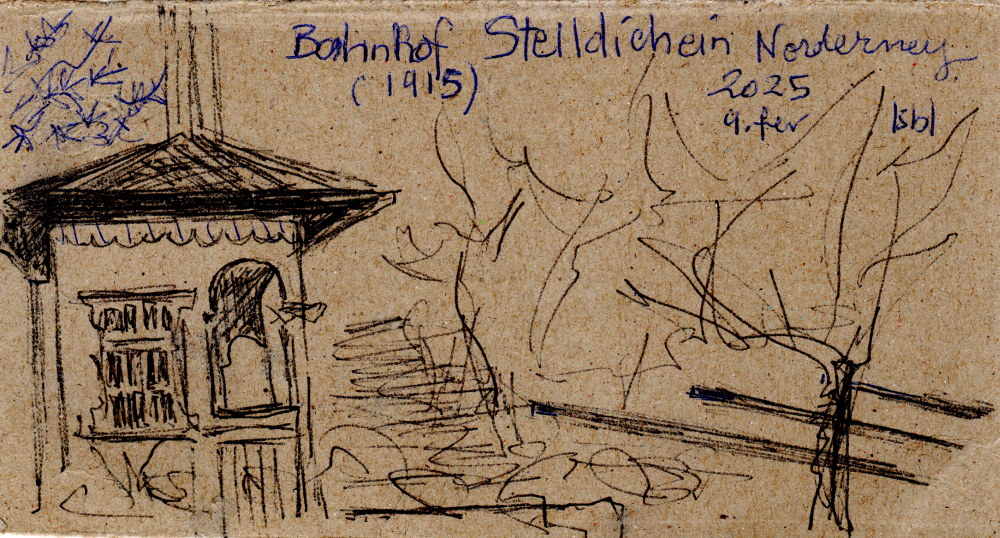 Bahnhof Stelldichein Norderney
(1915) 2025
9. fev lsbl